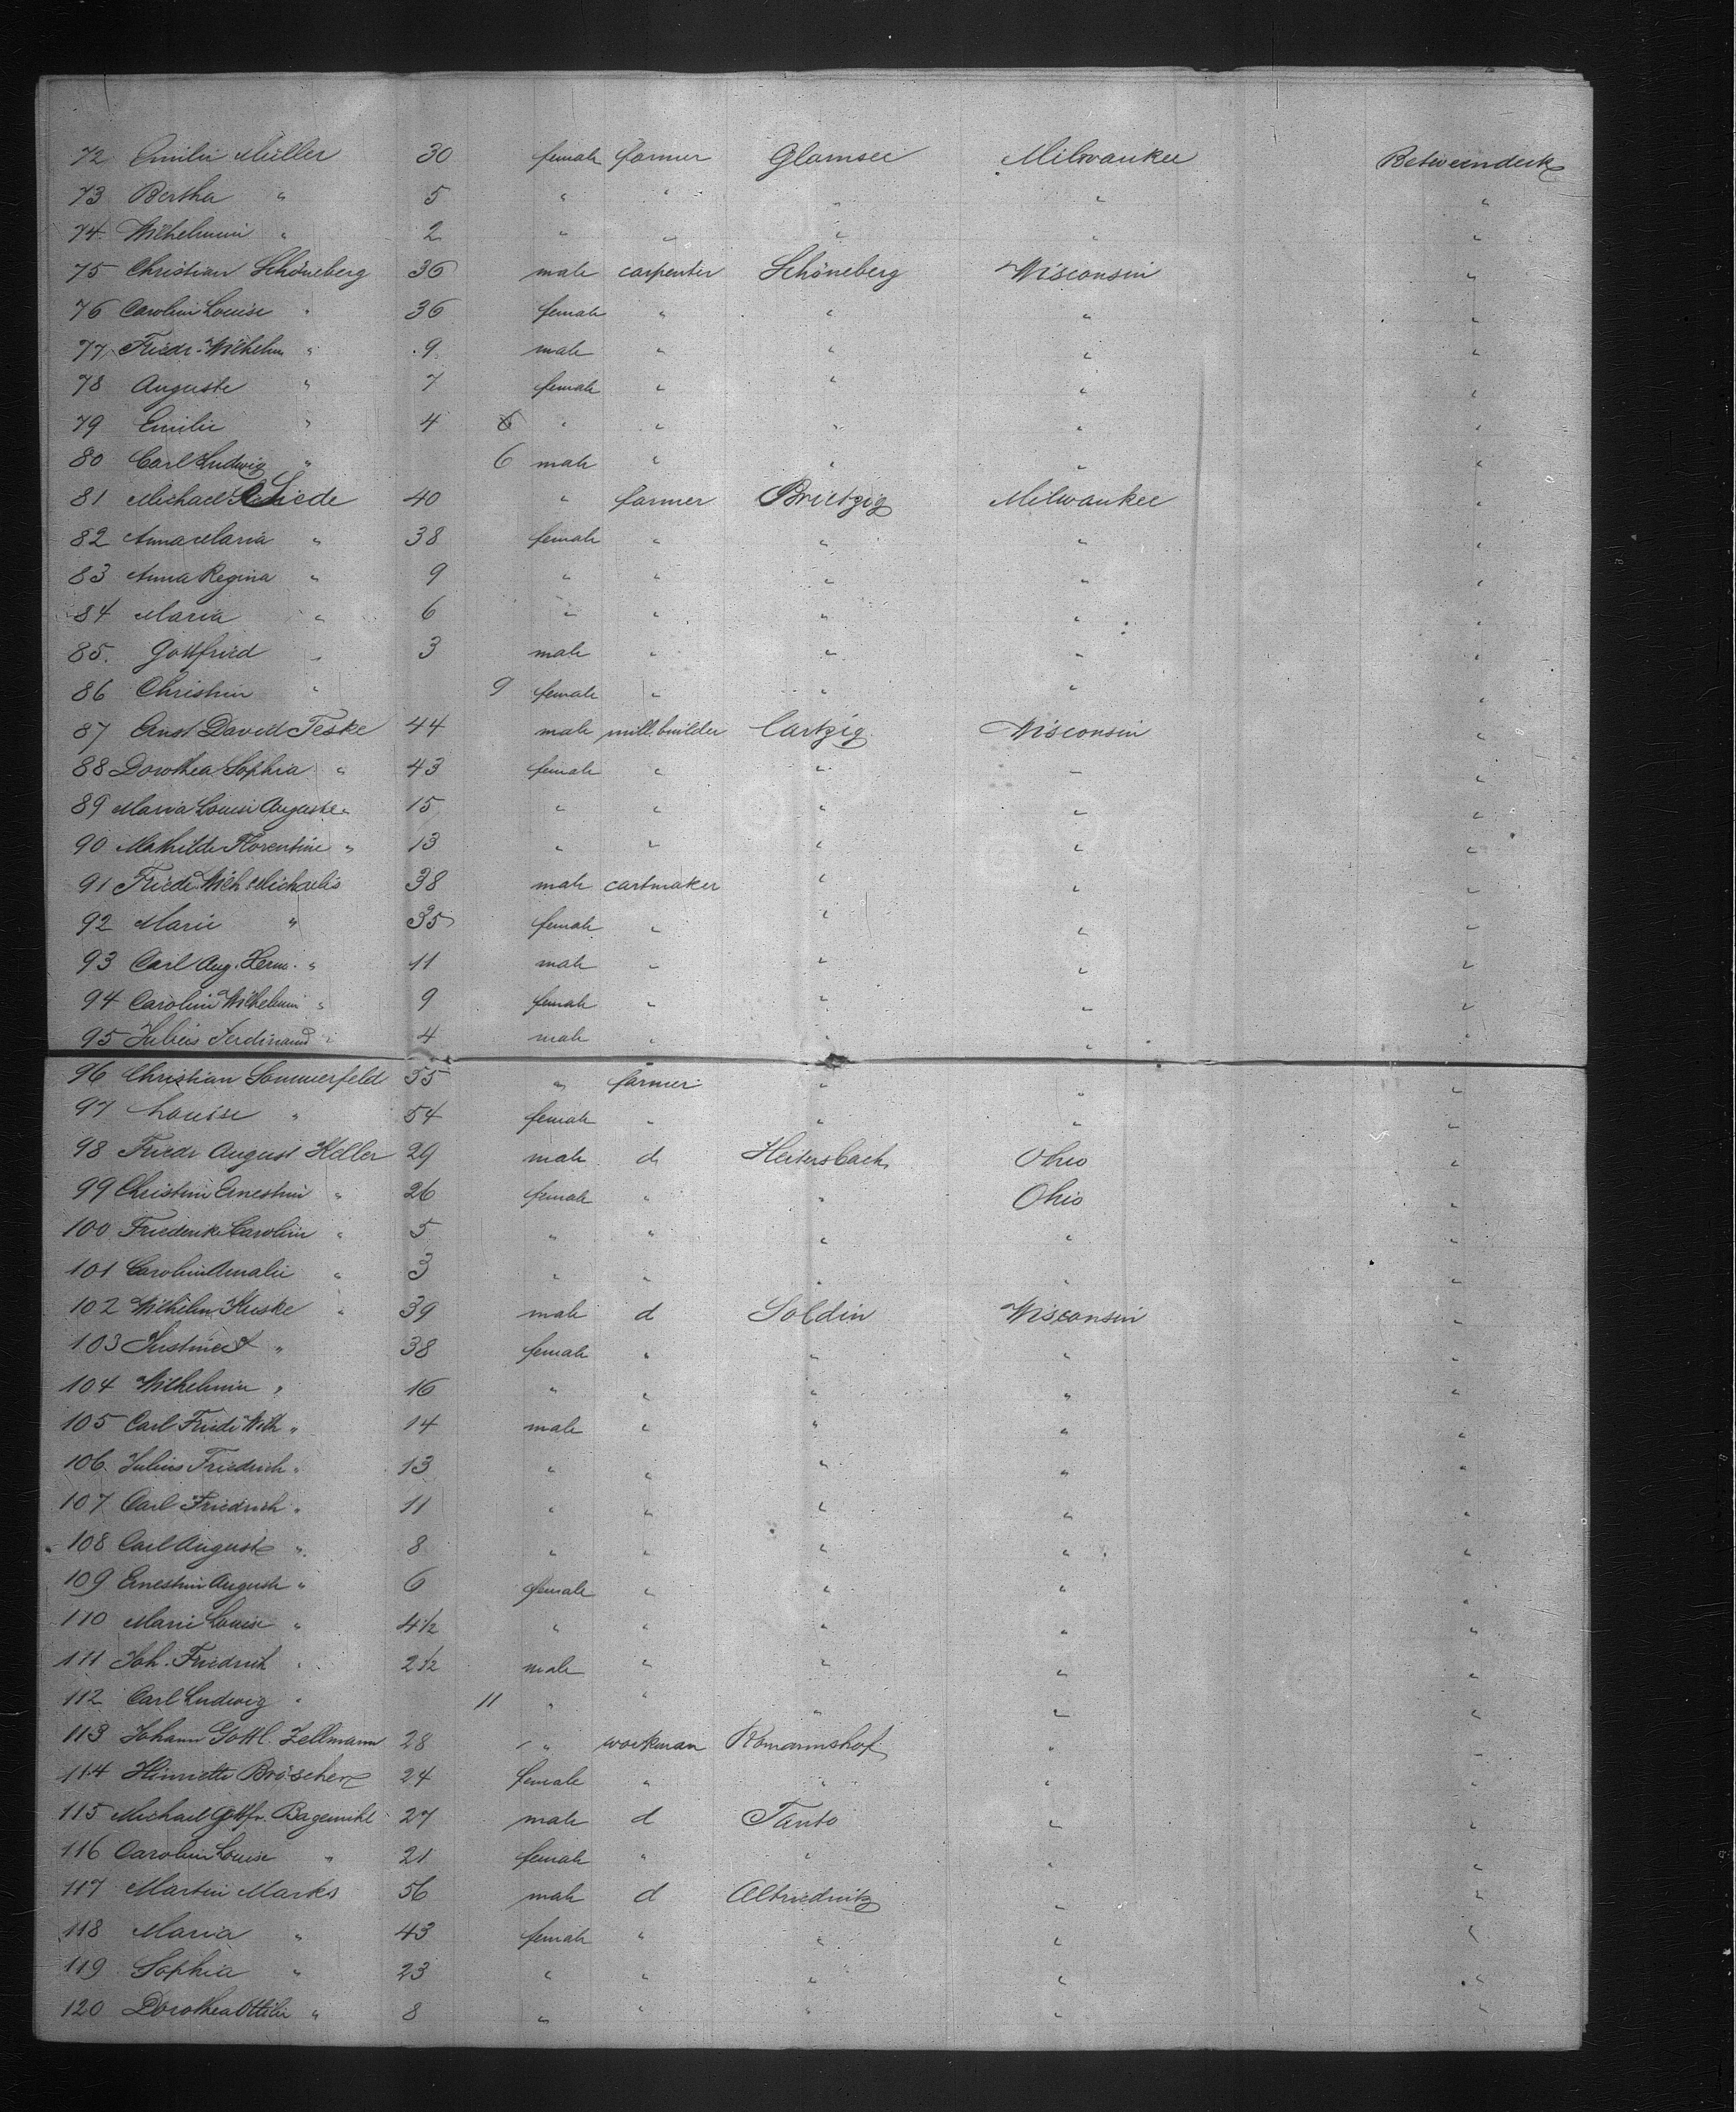 72 Emilie Müller 30 female farmer Glamsee Milwaukee Betweendeck
73 Bertha " 5 " " " " "
74 Wilhelmine " 2 " " " " "
75 Christian Schöneberg 36 male carpenter Schöneberg Wisconsin "
76 Caroline Louise " 36 female " " " "
77 Friedr. Wilhelm " 9 male " " " "
78 Auguste " 7 female " " " "
79 Emilie " 4 " " " " "
80 Carl Ludwig " 6 male " " " "
81 Michael 40 " farmer Brietzig Milwaukee "
82 Anna Maria " 38 female " " " "
83 Anna Regina " 9 " " " " "
84 Maria " 6 " " " " "
85. Gottfried " 3 male " " " "
86 Christine " 9 female " " " "
87 Ernst David Teske 44 male mill.builder Cartzig Wisconsin "
88 Dorothea Sophia " 43 female " " " "
89 Maria Louise Auguste " 15 " " " " "
90 Mathilde Florentine " 13 " " " " "
91 Friedr. Wilh. Michaelis 38 male cartmaker " " "
92 Marie " 35 female " " " "
93 Carl Aug. Herm. " 11 male " " " "
94 Caroline Wilhelmine " 9 female " " " "
95 Julius Ferdinand " 4 male " " " "
96 Christian Sommerfeld 55 " farmer " " "
97 Louise " 54 female " " " "
98 Friedr August Keller 29 male d Heitersbach Ohio "
99 Christine Ernestine " 26 female " " Ohio "
100 Friederike Caroline " 5 " " " " "
101 Caroline Amalie " 3 " " " " "
102 Wilhelm Kuske " 39 male d Soldin Wisconsin "
103 Justine " 38 female " " " "
104 Wilhelmine " 16 " " " " "
105 Carl Friedr Wilh " 14 male " " " "
106 Julius Friedrich " 13 " " " " "
107 Carl Friedrich " 11 " " " " "
108 Carl August " 8 " " " " "
109 Ernestine Auguste " 6 female " " " "
110 Marie Louise " 4½ " " " " "
111 Joh. Friedrich " 2½ male " " " "
112 Carl Ludwig " 11 " " " " "
113 Johann Gottl. Zellmann 28 " workman " "
114 Henriette Bröscher 24 female " " " "
115 Michael Gottfr. Bagemihl 27 male d Tanto " "
116 Caroline Louise " 21 female " " " "
117 Martin Marks 56 male d Altriednitz " "
118 Maria " 43 female " " " "
119 Sophia " 23 " " " " "
120 Dorothea Ottilie " 8 " " " " "